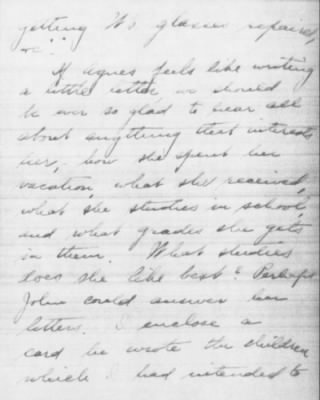 getting W's glasses repaired,
etc."
If Agnes feels like writing
a little letter we should
be ever so glad to hear all
about anything that interests
her, how she spent her
vacation, what she received,
what she studies in school,
and what grades she gets
in them. What studies
does she like best? Perhaps
John could answer her
letters. I enclose a
card he wrote the children
which I had intended to